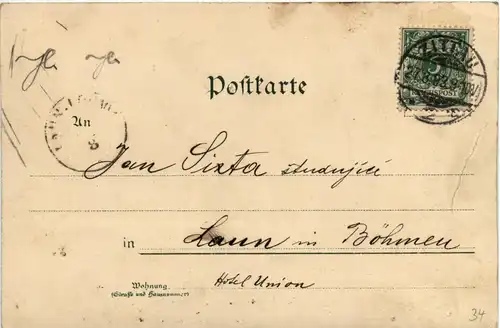 ZITTAU
Postkarte
An
Jan Sixta studující
in Laun in Böhmen
Hotel Union
Wohnung
(Straße und Hausnummer)
34